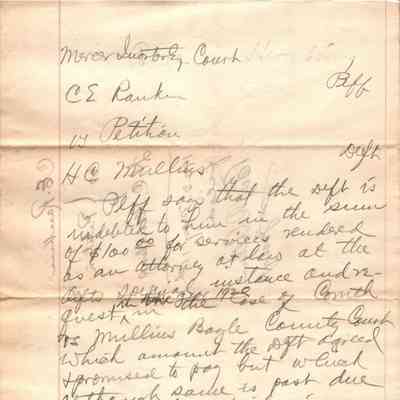 Mercer Quarterly Court
C E Rankin Plff
vs Petition
H C Mullins Deft
Plff says that the Deft is
indebted to him in the sum
of $100 00 for services rendered
as an attorney at law at the
Defts instance and re-
quest in the case of
vs Mullins Boyle County Court
which amount the Deft agreed
& promised to pay but which
although same is past due